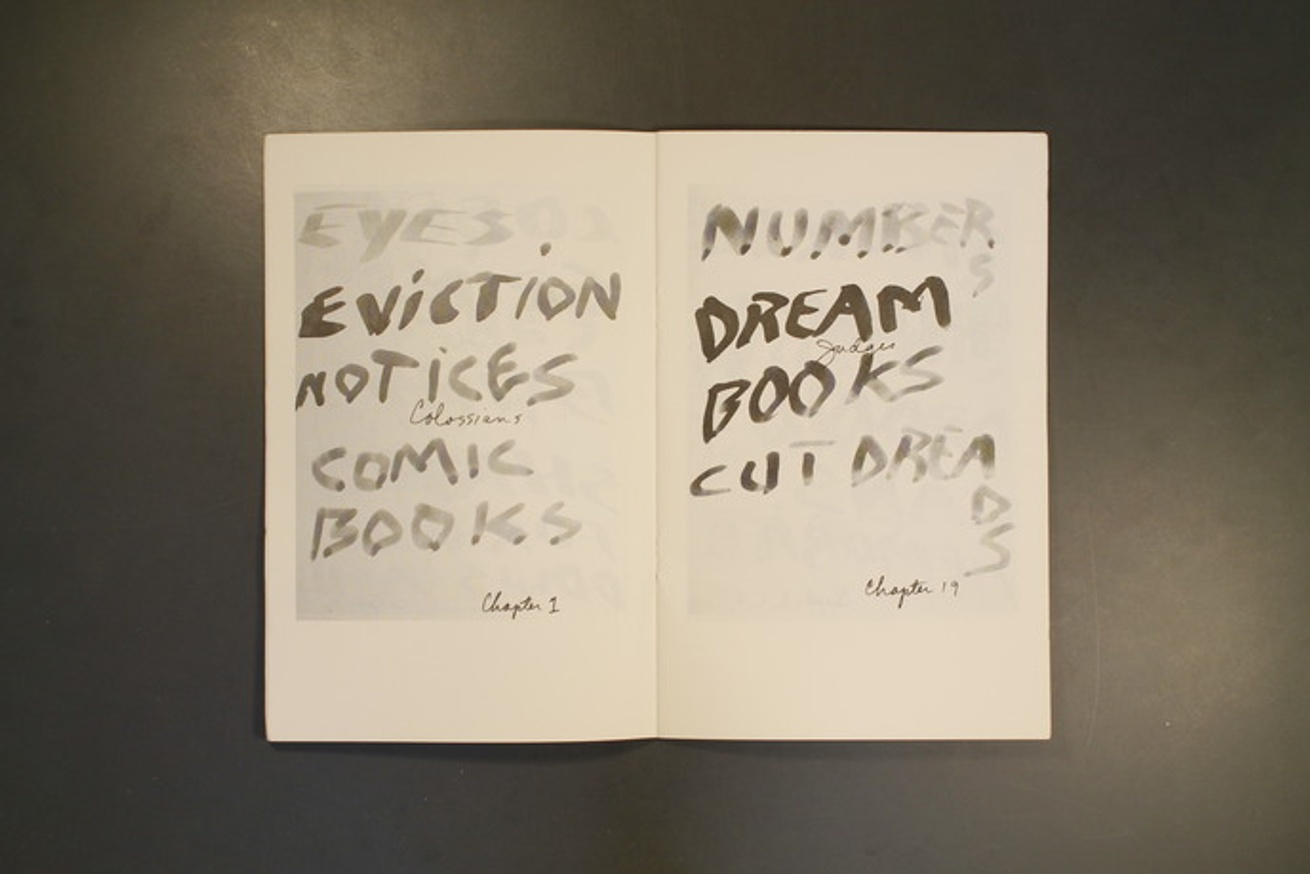 EYES.
EVICTION
NOTICES
Colossians
COMIC
BOOKS
Chapter 1
NUMBER
S
DREAM
Judges
BOOKS
CUT DREA
DS
Chapter 19